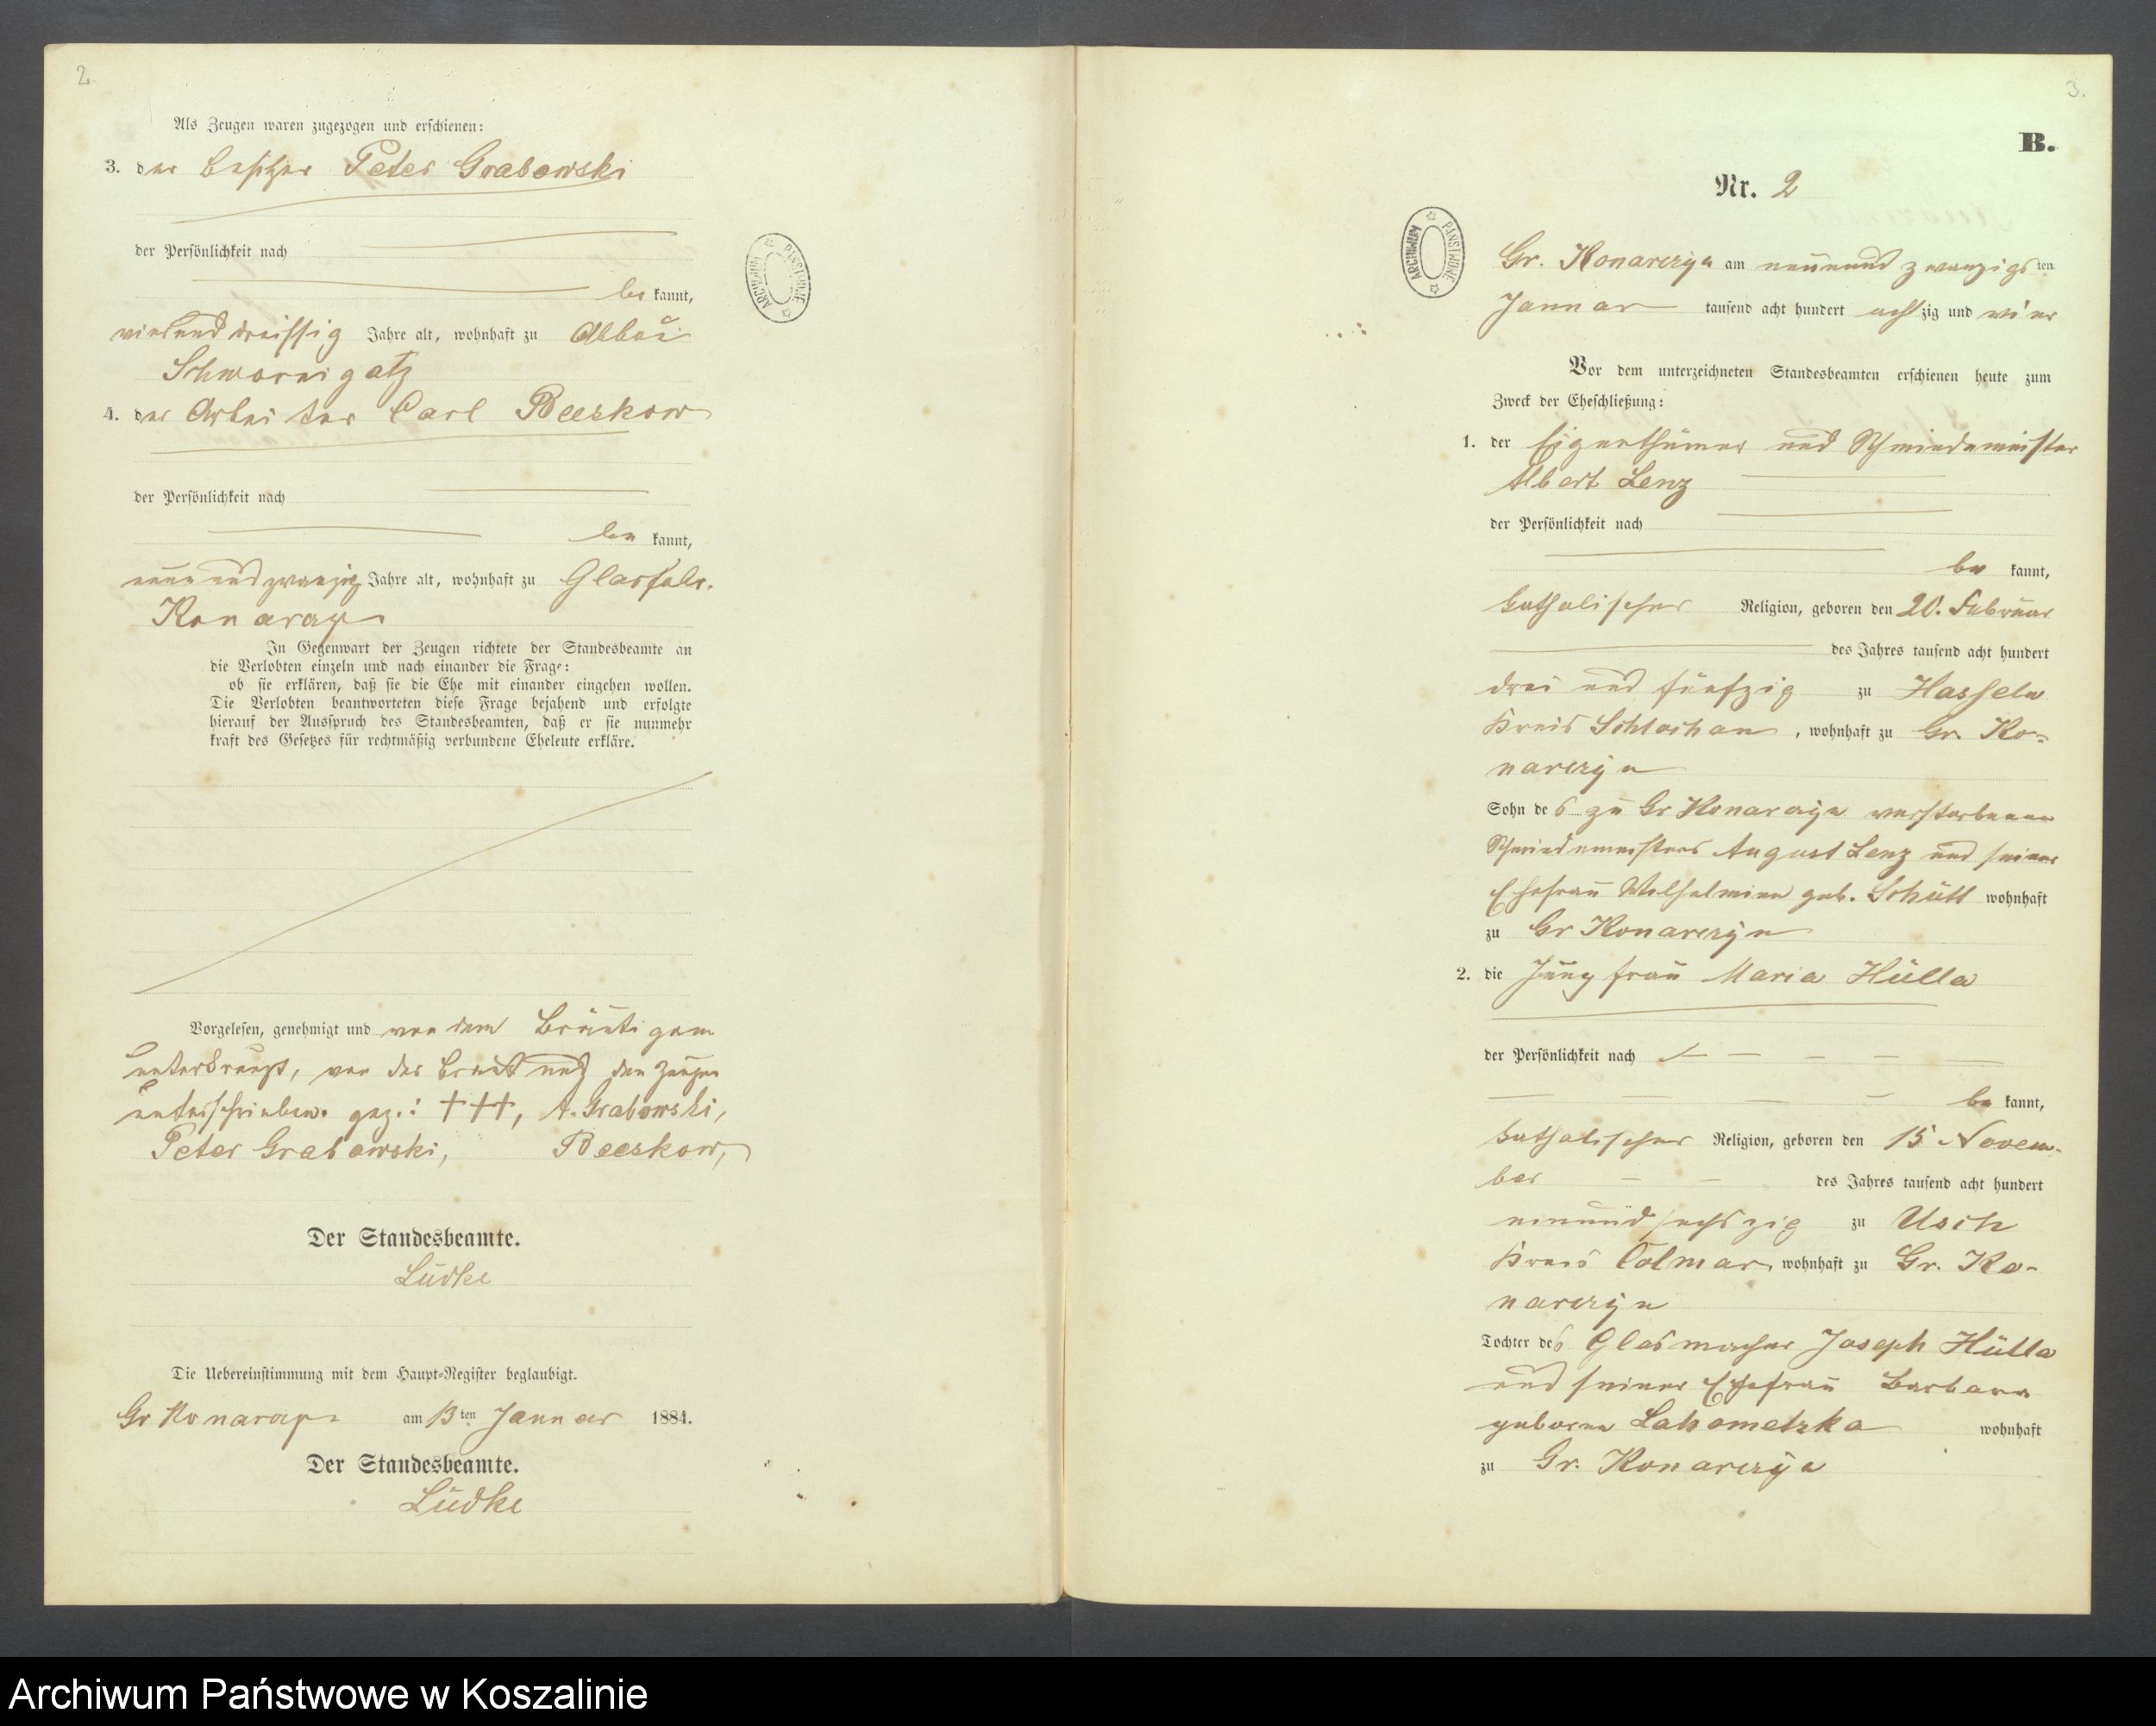 2.
Als Zeugen waren zugezogen und erschienen:
3. der Besitzer Peter Grabowski
der Persönlichkeit nach
be kannt,
vierunddreissig Jahre alt, wohnhaft zu Abbau
Schwornigatz
4. der Arbeiter Carl Beeskow
der Persönlichkeit nach
be kannt,
neunundzwanzig Jahre alt, wohnhaft zu Glasfabr.
Konarczyn
In Gegenwart der Zeugen richtete der Standesbeamte an
die Verlobten einzeln und nach einander die Frage:
ob sie erklären, daß sie die Ehe mit einander eingehen wollen.
Die Verlobten beantworteten diese Frage bejahend und erfolgte
hierauf der Ausspruch des Standesbeamten, daß er sie nunmehr
kraft des Gesetzes für rechtmäßig verbundene Eheleute erkläre.
Vorgelesen, genehmigt und von dem Bräutigam
unterkreuzt, von der Braut und den Zeugen
unterschrieben. gez.: +++, A. Grabowski,
Peter Grabowski, Beeskow,
Der Standesbeamte.
Lüdke
Die Uebereinstimmung mit dem Haupt-Register beglaubigt.
Gr Konarczyn am 13ten Januar 1884.
Der Standesbeamte.
Lüdke
ARCHIWUM PAŃSTWOWE
3.
B.
Nr. 2
ARCHIWUM PAŃSTWOWE
Gr. Konarczyn am neunundzwanzigsten
Januar tausend acht hundert achtzig und vier
Vor dem unterzeichneten Standesbeamten erschienen heute zum
Zweck der Eheschließung:
1. der Eigenthümer und Schmiedemeister
Albert Lenz
der Persönlichkeit nach
be kannt,
katholischer Religion, geboren den 20. Februar
des Jahres tausend acht hundert
drei und fünfzig zu Hasseln
Kreis Schlochau, wohnhaft zu Gr. Ko=
narczyn
Sohn des zu Gr Konarczyn verstorbenen
Schmiedemeisters August Lenz und seiner
Ehefrau Wilhelmine geb. Schütt wohnhaft
zu Gr Konarczyn
2. die Jungfrau Maria Hülla
der Persönlichkeit nach
be kannt,
katholischer Religion, geboren den 15 Novem-
ber des Jahres tausend acht hundert
einundsechszig zu Usch
Kreis Colmar, wohnhaft zu Gr. Ko-
narczyn
Tochter des Glasmacher Joseph Hülla
und seiner Ehefrau Barbara
geborne wohnhaft
zu Gr. Konarczyn
Archiwum Państwowe w Koszalinie